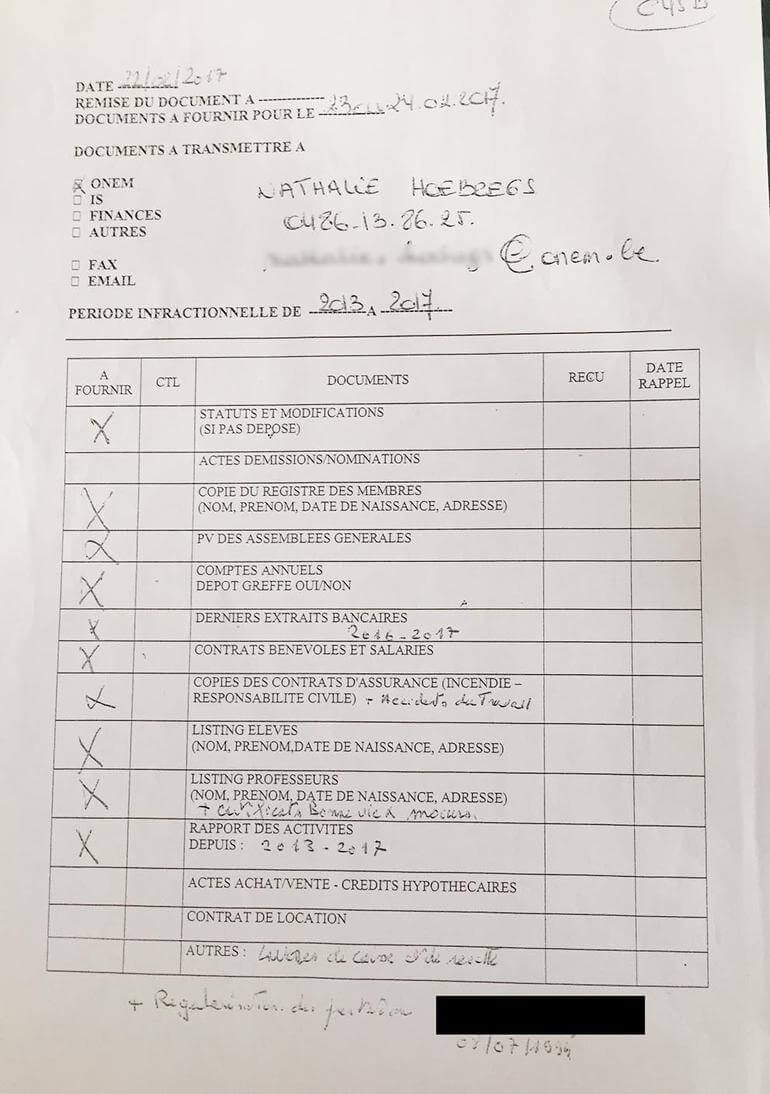 C45B
DATE 22/02/2017
REMISE DU DOCUMENT A ------------
DOCUMENTS A FOURNIR POUR LE 23 24.02.2017.
DOCUMENTS A TRANSMETTRE A
☒ ONEM
NATHALIE HOEBREGS
□ IS
□ FINANCES
0486.13.26.25.
□ AUTRES
@onem.be
□ FAX
□ EMAIL
PERIODE INFRACTIONNELLE DE 2013 A 2017
A FOURNIR CTL DOCUMENTS RECU DATE RAPPEL
X STATUTS ET MODIFICATIONS
(SI PAS DEPOSE)
ACTES DEMISSIONS/NOMINATIONS
X COPIE DU REGISTRE DES MEMBRES
(NOM, PRENOM, DATE DE NAISSANCE, ADRESSE)
X PV DES ASSEMBLEES GENERALES
X COMPTES ANNUELS
DEPOT GREFFE OUI/NON
X DERNIERS EXTRAITS BANCAIRES
2016-2017
X CONTRATS BENEVOLES ET SALARIES
X COPIES DES CONTRATS D'ASSURANCE (INCENDIE –
RESPONSABILITE CIVILE) + Accidents du Travail
X LISTING ELEVES
(NOM, PRENOM,DATE DE NAISSANCE, ADRESSE)
X LISTING PROFESSEURS
(NOM, PRENOM, DATE DE NAISSANCE, ADRESSE)
+ certificats Bonne vie & moeurs.
X RAPPORT DES ACTIVITES
DEPUIS : 2013-2017
ACTES ACHAT/VENTE - CREDITS HYPOTHECAIRES
CONTRAT DE LOCATION
AUTRES : de de
+
08/07/1994